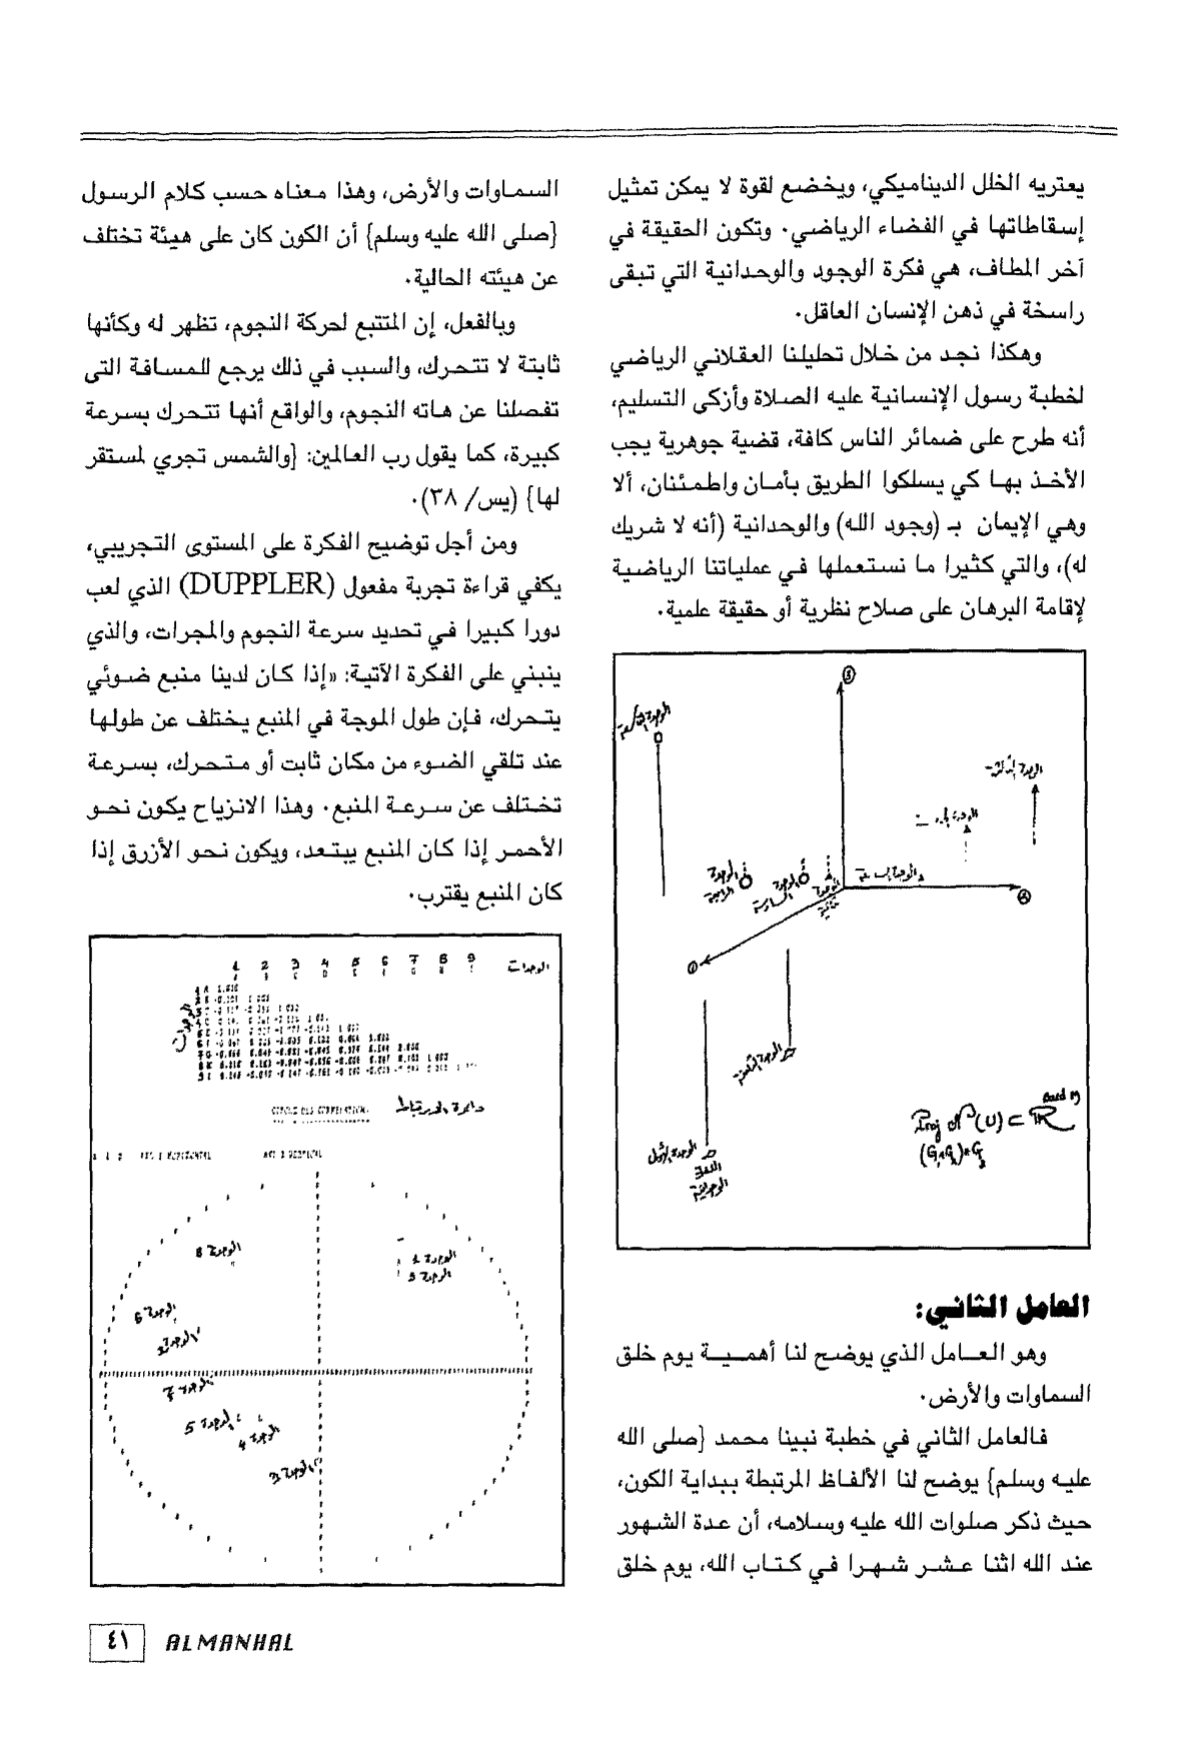 يعتريه الخلل الديناميكي، ويخضع لقوة لا يمكن تمثيل
إسقاطاتها في الفضاء الرياضي. وتكون الحقيقة في
آخر المطاف، هي فكرة الوجود والوحدانية التي تبقى
راسخة في ذهن الإنسان العاقل.
وهكذا نجد من خلال تحليلنا العقلاني الرياضي
لخطبة رسول الإنسانية عليه الصلاة وأزكى التسليم،
أنه طرح على ضمائر الناس كافة، قضية جوهرية يجب
الأخذ بها كي يسلكوا الطريق بأمان واطمئنان، ألا
وهي الإيمان بـ (وجود الله) والوحدانية (أنه لا شريك
له)، والتي كثيرا ما نستعملها في عملياتنا الرياضية
لإقامة البرهان على صلاح نظرية أو حقيقة علمية.
العامل الثاني:
وهو العامل الذي يوضح لنا أهمية يوم خلق
السماوات والأرض.
فالعامل الثاني في خطبة نبينا محمد {صلى الله
عليه وسلم} يوضح لنا الألفاظ المرتبطة ببداية الكون،
حيث ذكر صلوات الله عليه وسلامه، أن عدة الشهور
عند الله اثنا عشر شهرا في كتاب الله، يوم خلق
السماوات والأرض، وهذا معناه حسب كلام الرسول
{صلى الله عليه وسلم} أن الكون كان على هيئة تختلف
عن هيئته الحالية.
وبالفعل، إن المتتبع لحركة النجوم، تظهر له وكأنها
ثابتة لا تتحرك، والسبب في ذلك يرجع للمسافة التى
تفصلنا عن هاته النجوم، والواقع أنها تتحرك بسرعة
كبيرة، كما يقول رب العالمين: {والشمس تجري لمستقر
لها} (يس/ ٣٨).
ومن أجل توضيح الفكرة على المستوى التجريبي،
يكفي قراءة تجربة مفعول (DUPPLER) الذي لعب
دورا كبيرا في تحديد سرعة النجوم والمجرات، والذي
ينبني على الفكرة الآتية: «إذا كان لدينا منبع ضوئي
يتحرك، فإن طول الموجة في المنبع يختلف عن طولها
عند تلقي الضوء من مكان ثابت أو متحرك، بسرعة
تختلف عن سرعة المنبع. وهذا الانزياح يكون نحو
الأحمر إذا كان المنبع يبتعد، ويكون نحو الأزرق إذا
كان المنبع يقترب.
1 2 3 4 5 6 7 8 9 الوحدات
الوحدات
دائرة الارتباط
الوحدة 8
الوحدة 1
الوحدة 9
الوحدة 6
الوحدة 7
الوحدة 5
الوحدة 4
الوحدة 3
٤١ ALMANHAL